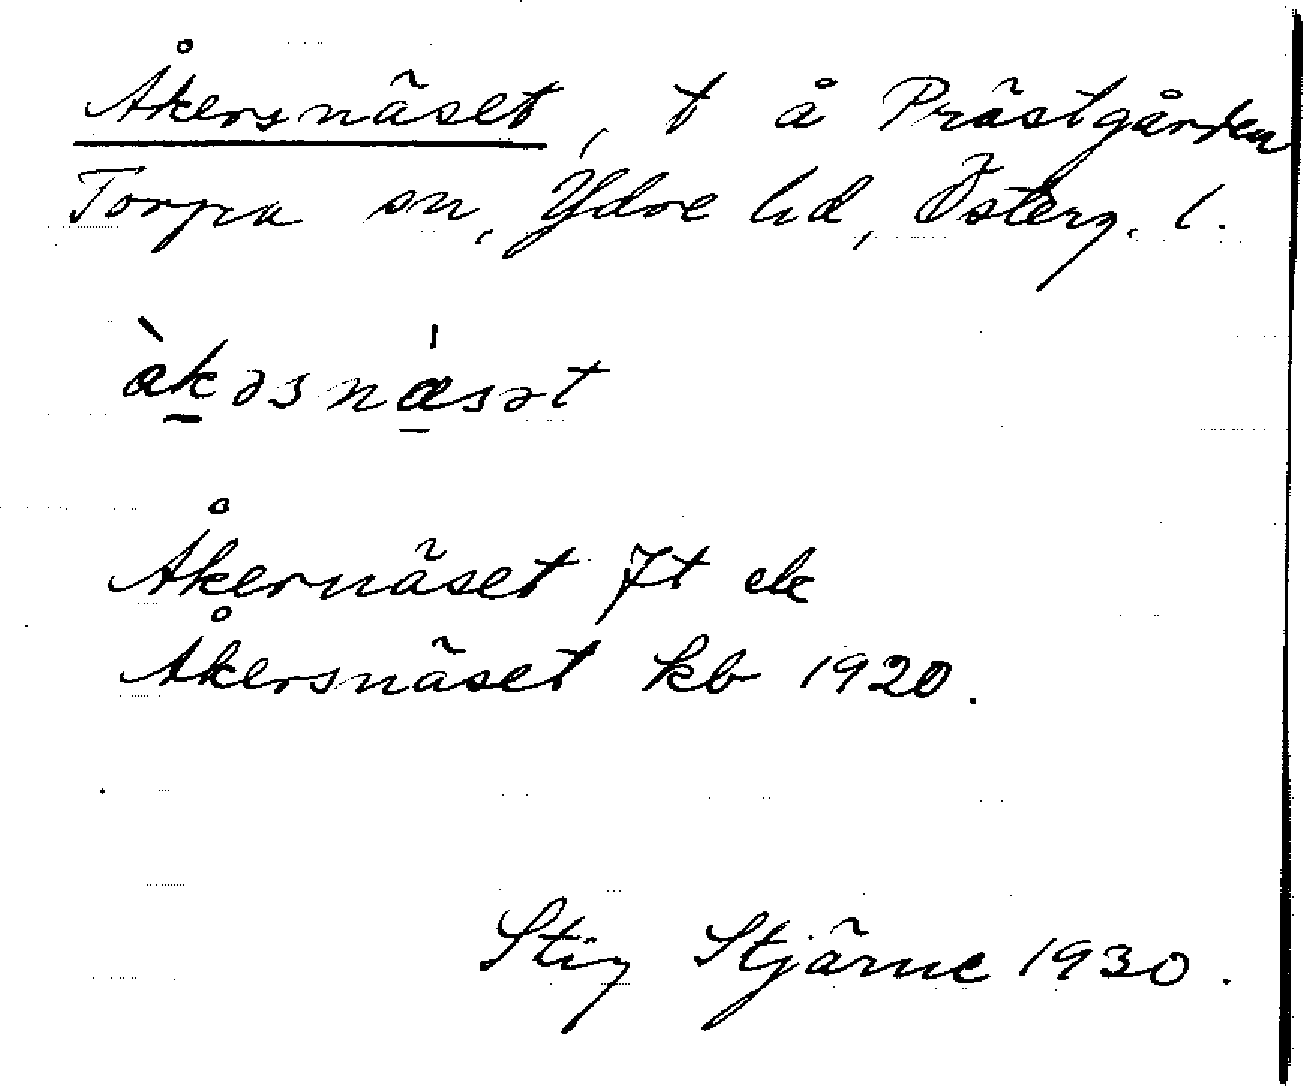 Åkersnäset, t å Prästgården
Torpa sn, Ydre hd, Österg. l.
àkəsnæ̀sət
Åkernäset Jt ek
Åkersnäset kb 1920.
Stig Stjärne 1930.